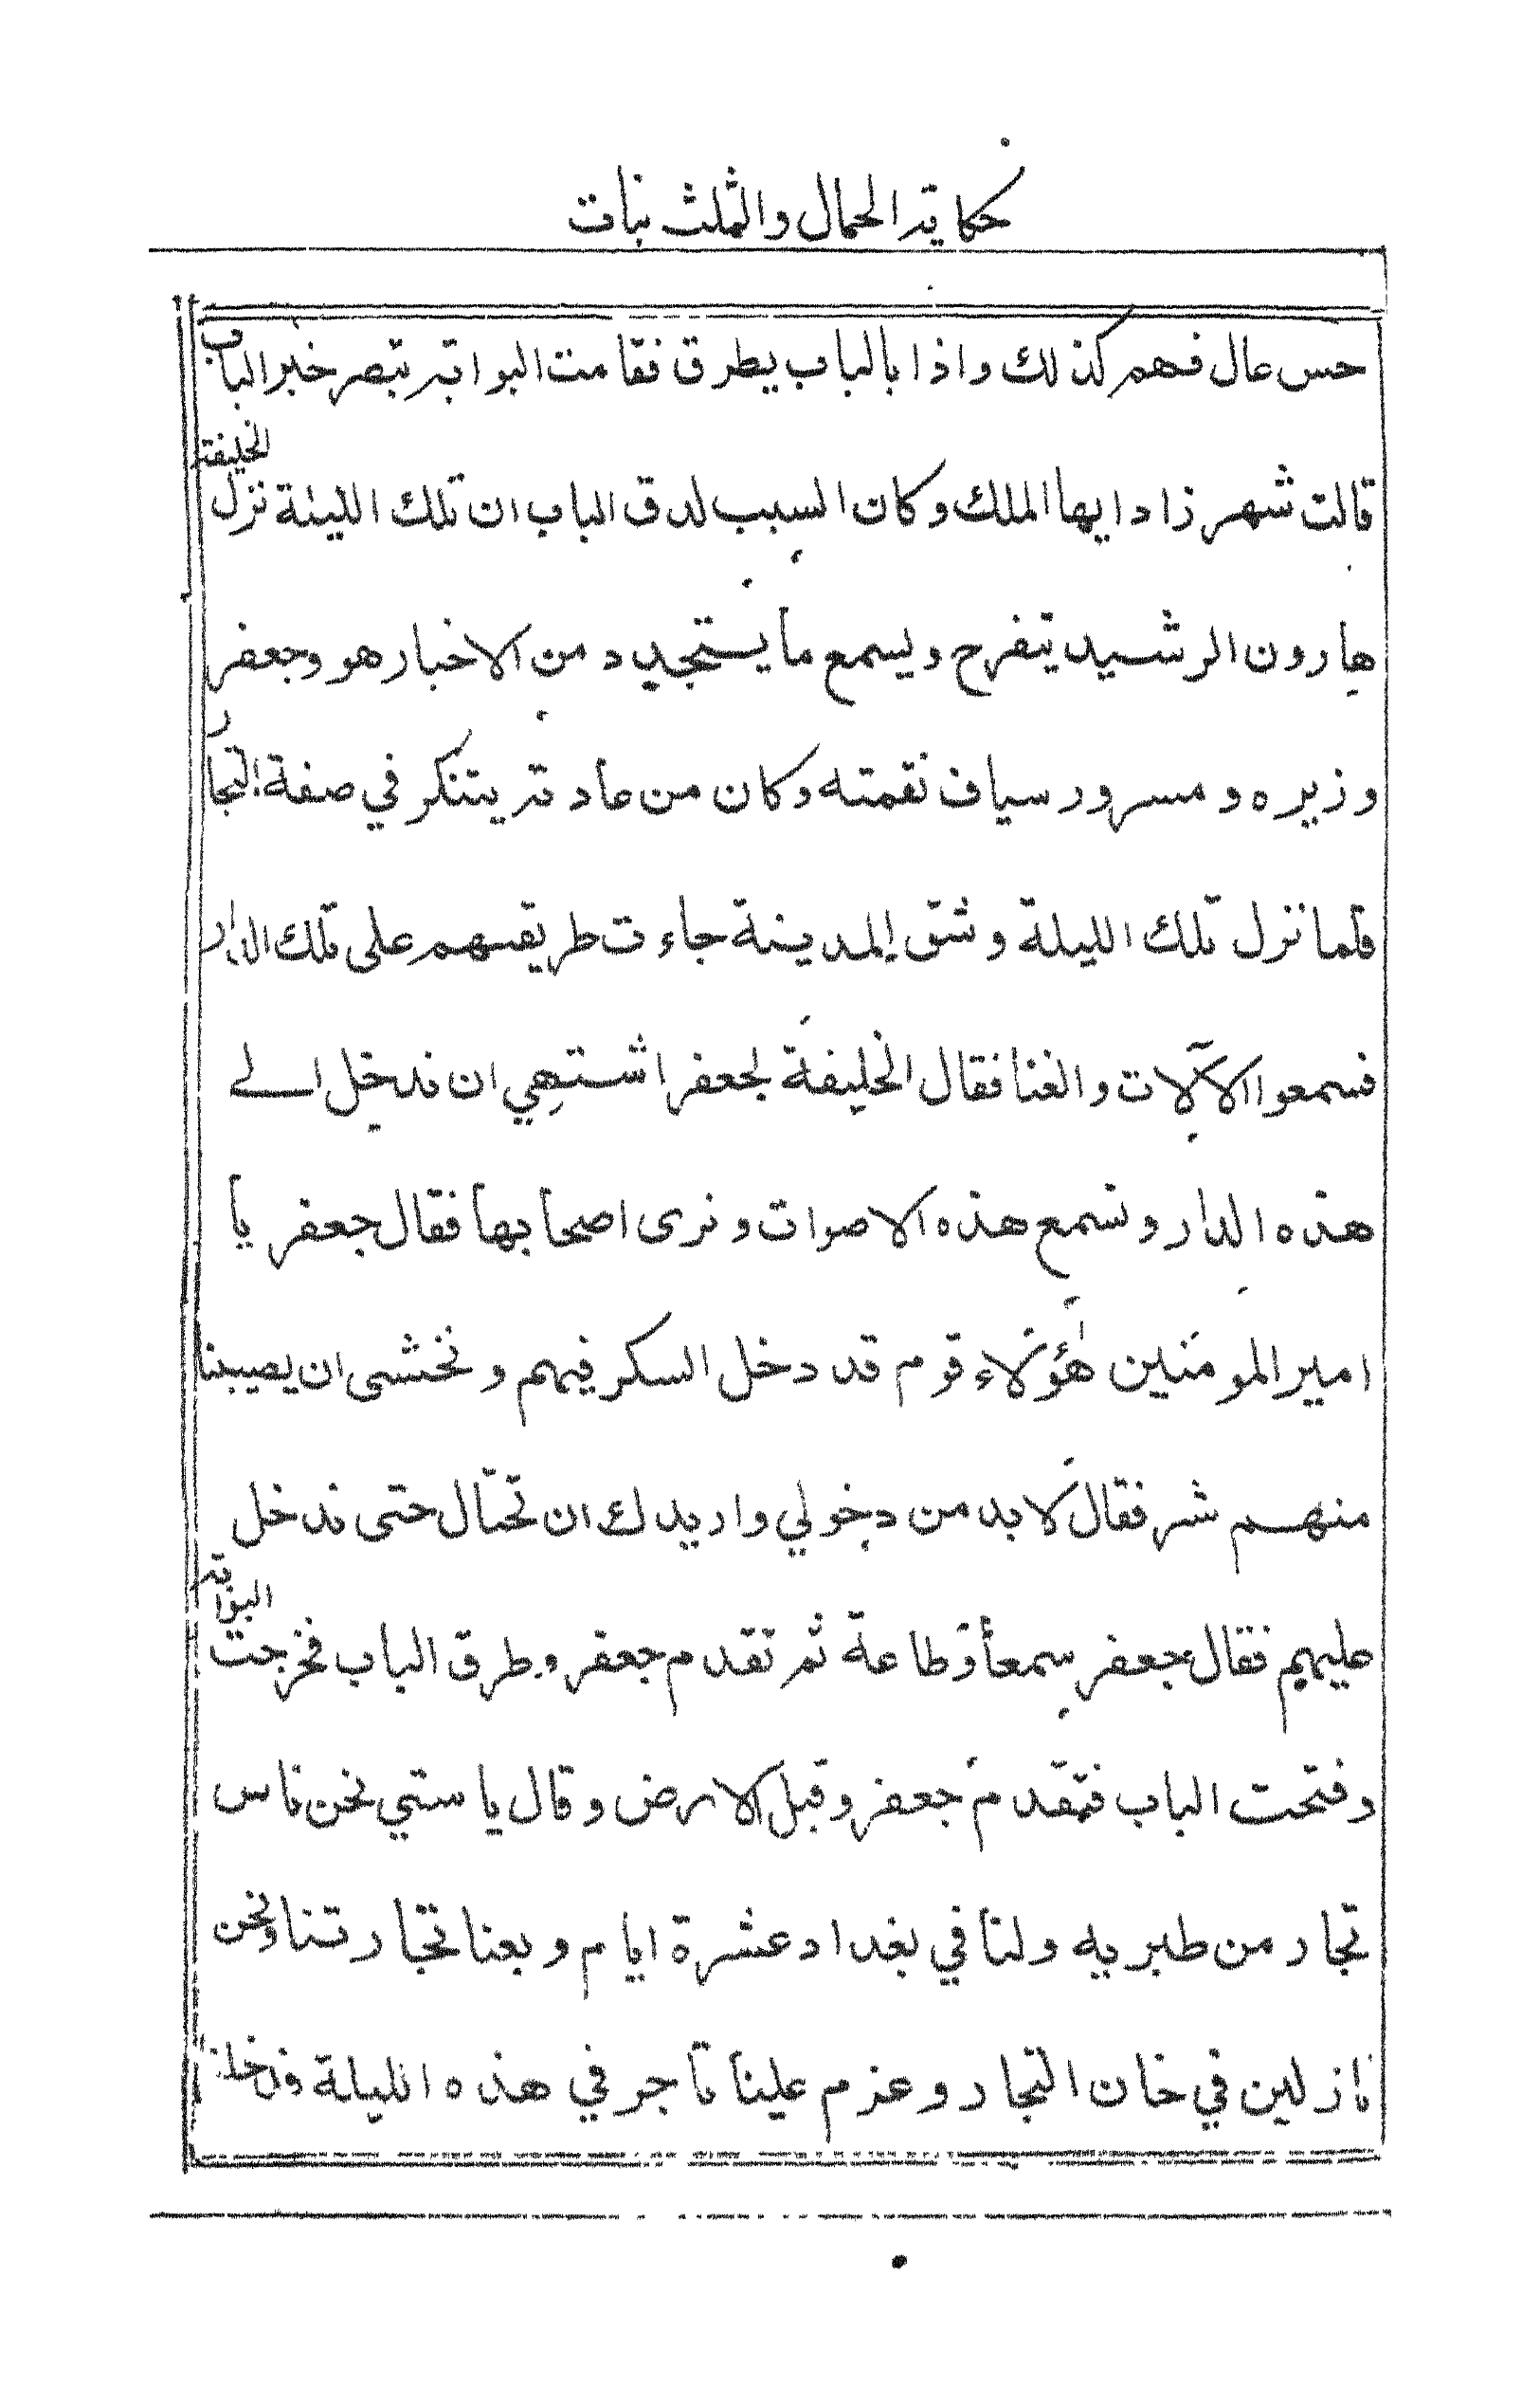 حكاية الحمال والثلث بنات
حس عال فهم كذلك واذا بالباب يطرق فقامت البوابة تبصر خبر الباب
قالت شهرزاد ايها الملك وكان السبب لدق الباب ان تلك الليلة نزل الخليفة
هارون الرشيد يتفرج ويسمع ما يستجد د من الاخبار هو وجعفر
وزيره ومسرور سياف نقمته وكان من عادته يتنكر في صفة التجار
فلما نزل تلك الليلة وشق المدينة جاءت طريقهم على تلك الدار
فسمعوا الآلات والغنا فقال الخليفة لجعفر اشتهي ان ندخل الے
هذه الدار ونسمع هذه الاصوات ونرى اصحابها فقال جعفر يا
امير المومنين هٰؤلاء قوم قد دخل السكر فيهم ونخشى ان يصيبنا
منهم شر فقال لا بد من دخولي واريدك ان تحتال حتى ندخل
عليهم فقال جعفر سمعاً وطاعة ثم تقدم جعفر وطرق الباب فخرجت البوابة
وفتحت الباب فتقدم جعفر وقبل الارض وقال يا ستي نحن ناس
تجار من طبريه ولنا في بغداد عشرة ايام وبعنا تجارتنا ونحن
نازلين في خان التجار وعزم علينا تاجر في هذه الليلة فدخلنا